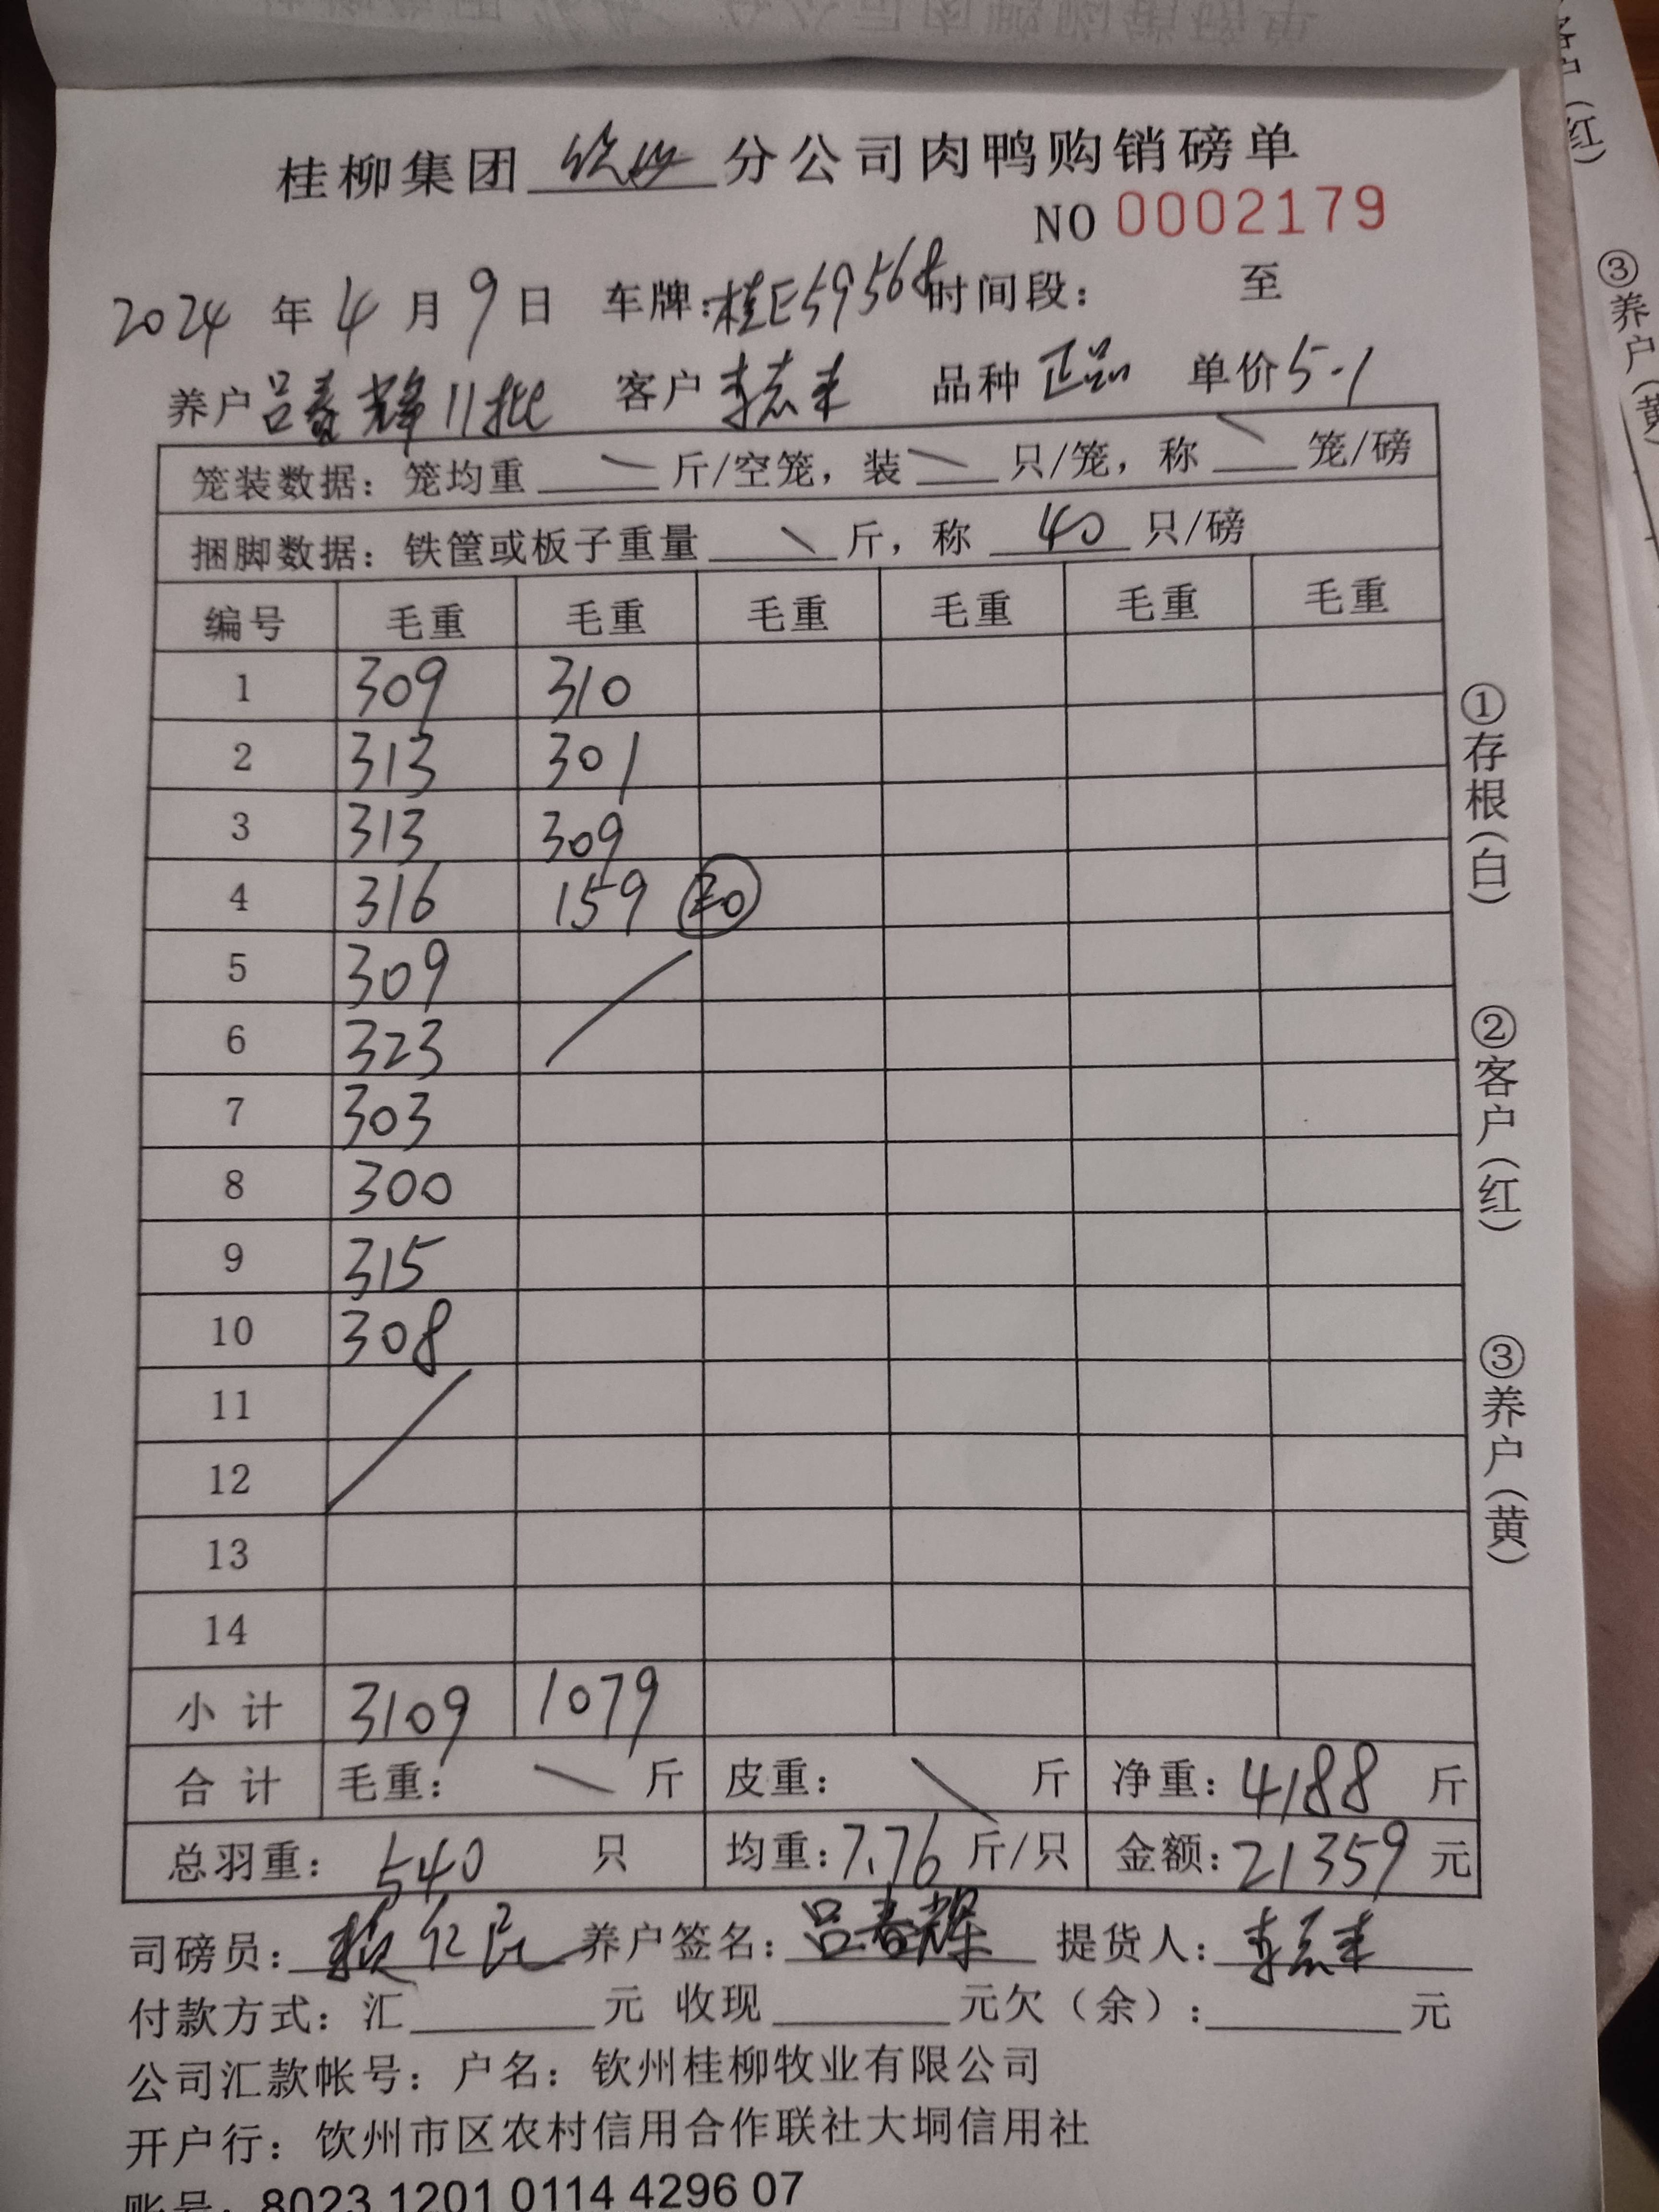 桂柳集团 钦州 分公司肉鸭购销磅单
NO 0002179
2024 年 4 月 9 日 车牌:桂E59568 时间段: 至
养户 吕春辉 11批 客户 李志来 品种 正品 单价 5.1
笼装数据: 笼均重 \ 斤/空笼, 装 \ 只/笼, 称 \ 笼/磅
捆脚数据: 铁筐或板子重量 \ 斤, 称 40 只/磅
编号 毛重 毛重 毛重 毛重 毛重 毛重
1 309 310
2 313 301
3 313 309
4 316 159 20
5 309
6 323
7 303
8 300
9 315
10 308
11
12
13
14
小计 3109 1079
合计 毛重: \ 斤 皮重: \ 斤 净重: 4188 斤
总羽重: 540 只 均重: 7.76 斤/只 金额: 21359 元
司磅员: 养户签名: 吕春辉 提货人: 李志来
付款方式: 汇 元 收现 元欠(余): 元
公司汇款帐号: 户名: 钦州桂柳牧业有限公司
开户行: 饮州市区农村信用合作联社大垌信用社
账号: 8023 1201 0114 4296 07
①存根(白)
②客户(红)
③养户(黄)
③养户(黄)